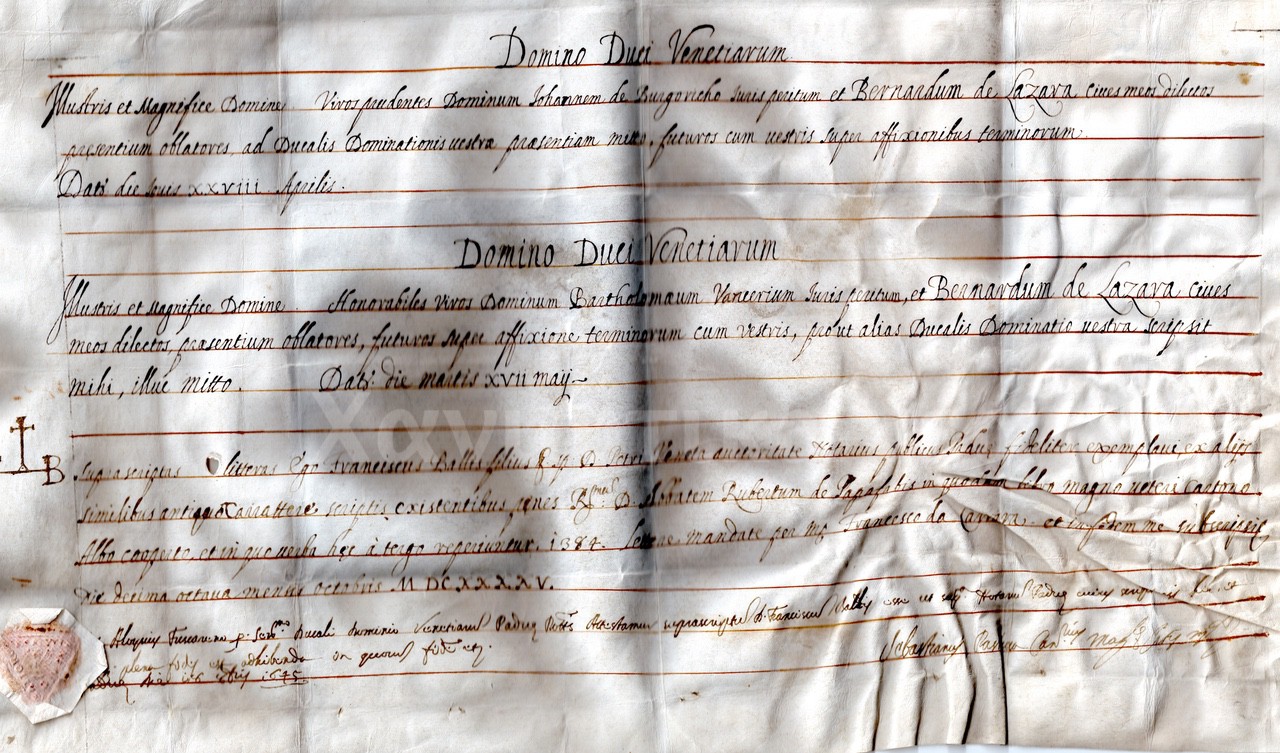 Domino Duci Venetiarum
Illustris et Magnifice Domine Viros prudentes Dominum Johannem de Burgoricho Jurisperitum et Bernardum de Lazara cives meos dilectos
præsentium oblatores, ad Ducalis Dominationis vestræ præsentiam mitto, futuros cum vestris super affixionibus terminorum.
Dat: die Jovis xxviii Aprilis.
Domino Duci Venetiarum
Illustris et Magnifice Domine. Honorabiles Viros Dominum Bartholomæum Jurisperitum, et Bernardum de Lazara cives
meos dilectos præsentium oblatores, futuros super affixione terminorum cum vestris, prout alias Ducalis Dominatio vestra scripsit
mihi, illuc mitto. Dat: die martis xvii maij
B Suprascriptas litteras Ego Franciscus filius D. Petri Veneta auctoritate Notarius publicus Paduę fideliter exemplavi ex alijs
similibus antiquo carattere scriptis existentibus penes D. Abbatem Rubertum de Papafabis in quodam libro magno veteri
Albo cooperto, et in quo verba hęc à tergo reperiuntur. 1384. Lettere mandate per Francesco da Carrara. et in fidem me subscripsi
die decima octava mensis octobris M DCXXXXV.
Aloysius pro Ducali Dominio Venetiarum Paduę
plena fides est adhibenda In quorum fidem etc.
1645
Sebastianus